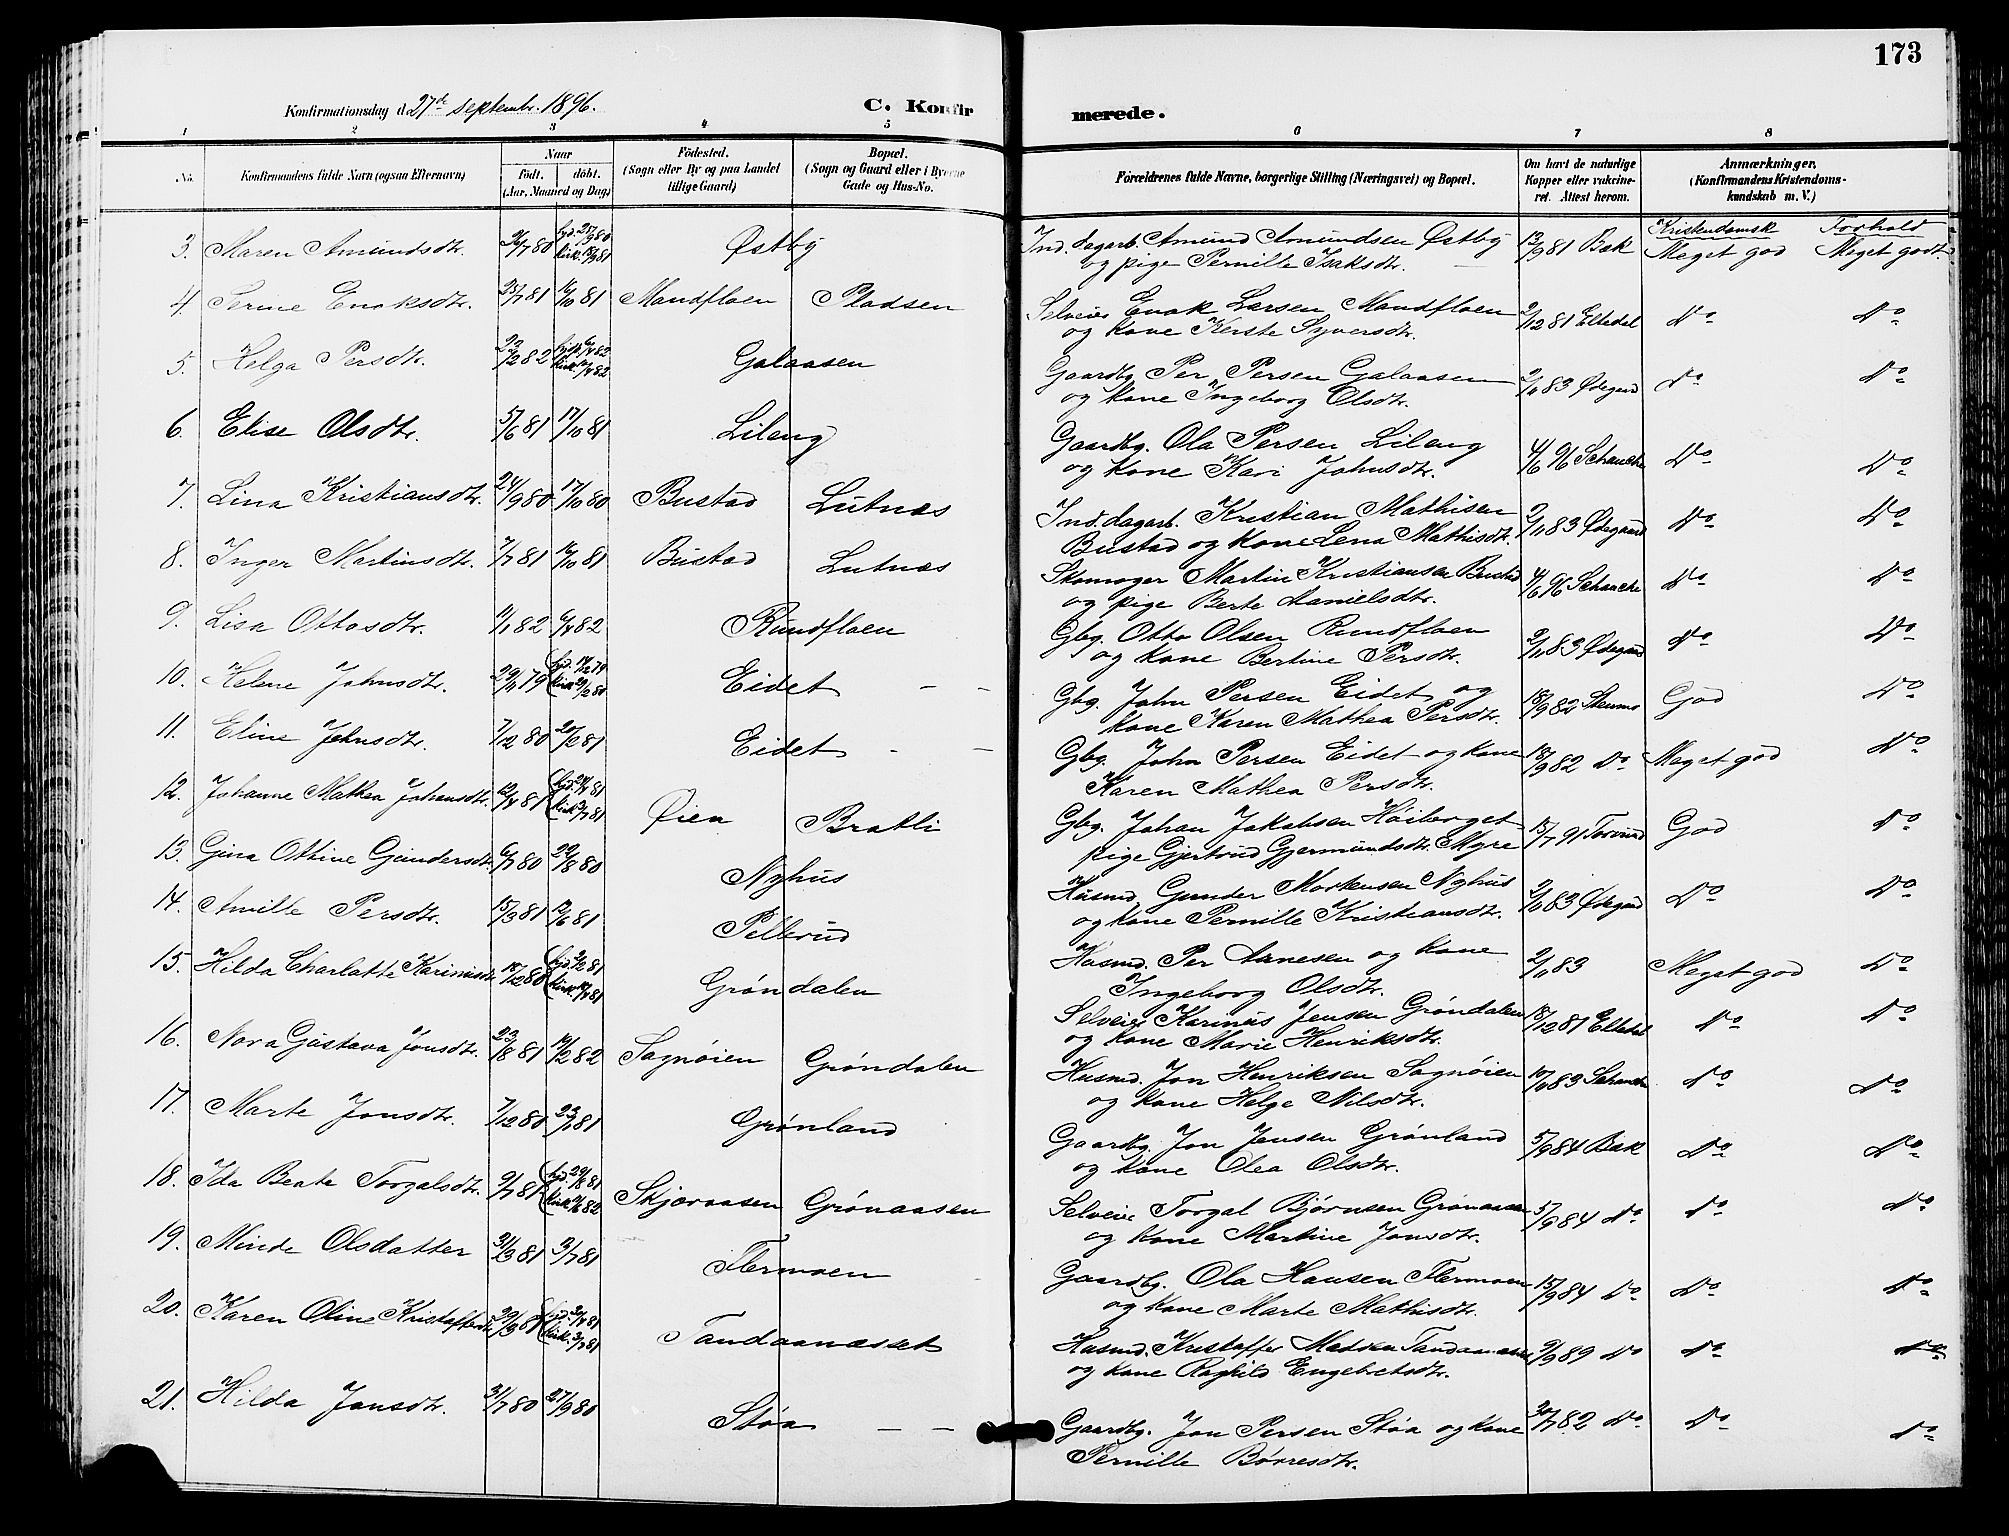 173
Konfirmationsdag d. 27de septembr. 1896.
C. Konfirmerede.
1 2 3 4 5 6 7 8
No.
Konfirmandens fulde Navn (ogsaa Efternavn)
Naar
født. døbt.
(Aar, Maaned og Dag)
Fødested.
(Sogn eller By og paa Landet
tillige Gaard)
Bopæl.
(Sogn og Gaard eller i Byerne
Gade og Hus-No.
Forældrenes fulde Navne, borgerlige Stilling (Næringsvei) og Bopæl.
Om havt de naturlige
Kopper eller vakcine-
ret. Attest herom.
Anmærkninger.
(Konfirmandens Kristendoms-
kundskab m. V.)
Kristendomsk Forhold
3. Maren Amundsdtr. 26/7 80 hjd. 25/9 80 kirk. 18/9 81 Østby Ind. dagarb. Amund Amundsen Østby 13/9 81 Bak Meget god Meget godt
og pige Pernille Isaksdtr.
4. Serine Enoksdtr. 25/7 81 16/10 81 Mandfloen Pladsen Selveier Enok Larsen Mandfloen 2/12 81 Eltedal Do Do
og kone Kerste Syversdtr.
5. Helga Persdtr. 23/2 82 Galaasen Gaardbg. Per Persen Galaasen 2/11 83 Ødegaard Do Do
og kone Ingeborg Olsdtr.
6. Elise Olsdtr. 5/6 81 17/10 81 Lileng Gaardbg. Ola Persen Lileng 4/6 96 Schanche Do Do
og kone Kari Johnsdtr.
7. Lina Kristiansdtr. 24/9 80 17/10 80 Bustad Lutnæs Ind. dagarb. Kristian Mathisen 2/11 83 Ødegaard Do Do
Bustad og kone Lena Mathisdtr.
8. Inger Martinsdtr. 7/7 81 16/10 81 Bustad Lutnæs Skomager Martin Kristiansen Bustad 4/6 96 Schanche Do Do
og pige Berte Danielsdtr.
9. Lisa Ottosdtr. 11/1 82 6/4 82 Rundfloen Gbg. Otto Olsen Rundfloen 2/11 83 Ødegaard Do Do
og kone Bertine Persdtr.
10. Helene Johnsdtr. 29/11 79 hjd. 14/12 79 kirk. 29/2 80 Eidet Gbg. John Persen Eidet og 18/9 82 God Do
kone Karen Mathea Persdtr.
11. Eline Johnsdtr. 7/12 80 20/2 81 Eidet Gbg. John Persen Eidet og kone 18/9 82 Do Meget god Do
Karen Mathea Persdtr.
12. Johanne Mathea Johansdtr. 12/4 81 hjd. 24/4 81 kirk. 3/7 81 Øien Bratli Gbg. Johan Jakobsen Høiberget 15/7 91 God Do
pige Gjertrud Gjermundsdtr. Myre
13. Gina Ottine Gundersdtr. 6/7 80 29/8 80 Nyhus Husmd. Gunder Mortensen Nyhus 2/11 83 Ødegaard Do Do
og kone Pernille Kristiansdtr.
14. Amille Persdtr. 15/3 81 12/6 81 Pellerud Husmd. Per Arnesen og kone 2/11 83 Meget god Do
Ingeborg Olsdtr.
15. Hilda Charlotte Karinusdtr. 18/12 80 Grøndalen Selveier Karinus Jensen Grøndalen 18/12 81 Eltedal Do Do
og kone Marie Henriksdtr.
16. Nora Gustava Jonsdtr. 23/8 81 14/2 82 Sagnøien Grøndalen Husmd. Jon Henriksen Sagnøien 10/11 83 Schanche Do Do
og kone Helge Nilsdtr.
17. Marte Jonsdtr. 7/12 80 23/1 81 Grønland Gaardbg. Jon Jensen Grønland 5/9 84 Bak Do Do
og kone Olea Olsdtr.
18. Ida Beate Torgalsdtr. 9/7 81 hjd. 29/8 81 Skjæraasen Grønaasen Selveier Torgal Bjørnsen Grønaasen 5/9 84 Do Do Do
og kone Martine Jonsdtr.
19. Minde Olsdatter 31/3 81 3/7 81 Flermoen Gaardbg. Ola Hansen Flermoen 15/9 84 Do Do Do
og kone Marte Mathisdtr.
20. Karen Oline Kristoffersdtr. 29/3 81 kirk. 3/7 81 Tandaanæsset Husmd. Kristoffer Madsen Tandaanæs 9/9 89 Do Do Do
og kone Raghild Engebretsdtr.
21. Hilda Jonsdtr. 31/7 80 27/9 80 Støa Gaardbg. Jon Persen Støa og kone 30/7 82 Do Do Do
Pernille Børresdtr.